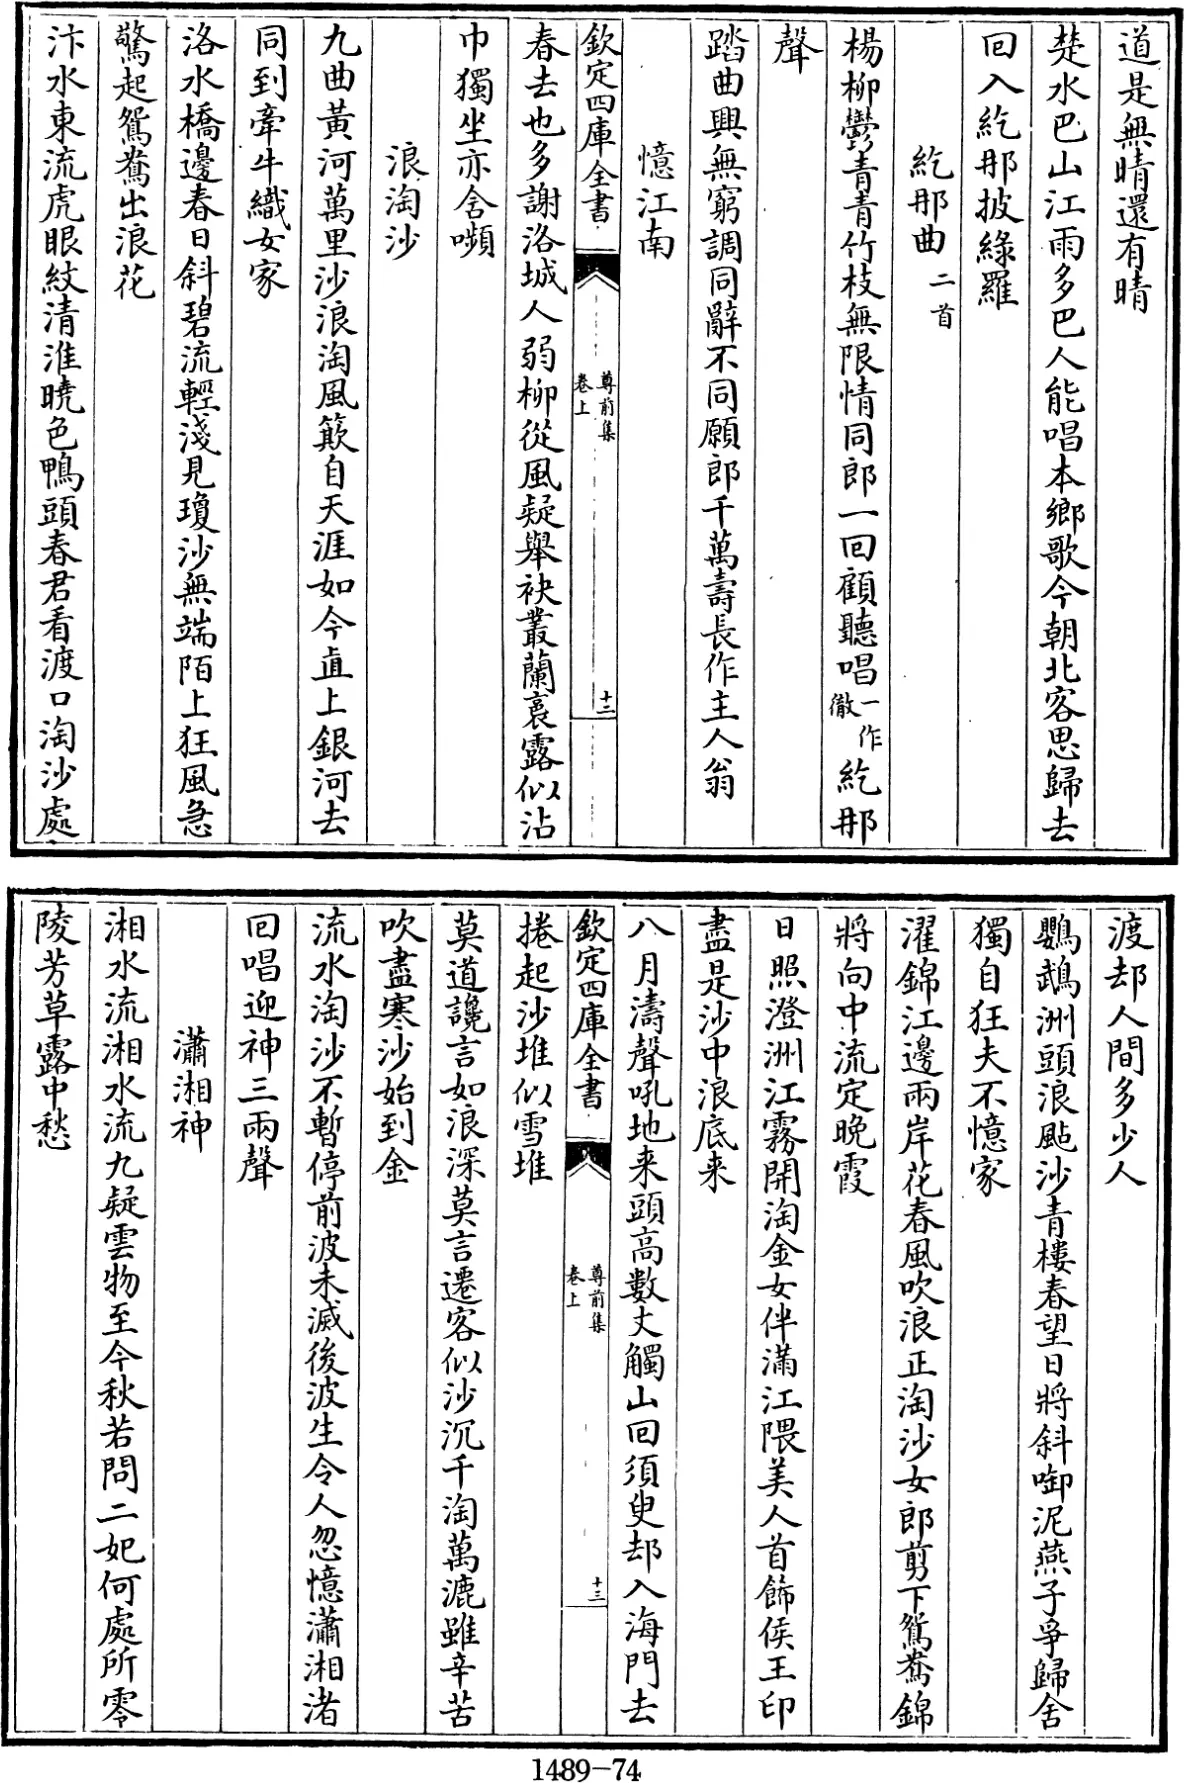 道是無晴還有晴
楚水巴山江雨多巴人能唱本鄉歌今朝北客思歸去
回入紇那披綠羅
紇那曲二首
楊柳鬱青青竹枝無限情同郎一回顧聽唱一作徹紇那
聲
踏曲興無窮調同辭不同願郎千萬壽長作主人翁
憶江南
欽定四庫全書 尊前集卷上 十二
春去也多謝洛城人弱柳從風疑舉袂叢蘭裛露似沾
巾獨坐亦含嚬
浪淘沙
九曲黃河萬里沙浪淘風簸自天涯如今直上銀河去
同到牽牛織女家
洛水橋邊春日斜碧流輕淺見瓊沙無端陌上狂風急
驚起鴛鴦出浪花
汴水東流虎眼紋清淮曉色鴨頭春君看渡口淘沙處
渡却人間多少人
鸚鵡洲頭浪颭沙青樓春望日將斜啣泥燕子爭歸舍
獨自狂夫不憶家
濯錦江邊兩岸花春風吹浪正淘沙女郎剪下鴛鴦錦
將向中流定晚霞
日照澄洲江霧開淘金女伴滿江隈美人首飾侯王印
盡是沙中浪底来
八月濤聲吼地来頭高數丈觸山回須臾却入海門去
欽定四庫全書 尊前集卷上 十三
捲起沙堆似雪堆
莫道讒言如浪深莫言遷客似沙沉千淘萬漉雖辛苦
吹盡寒沙始到金
流水淘沙不暫停前波未滅後波生令人忽憶瀟湘渚
回唱迎神三兩聲
瀟湘神
湘水流湘水流九疑雲物至今秋若問二妃何處所零
陵芳草露中愁
1489-74